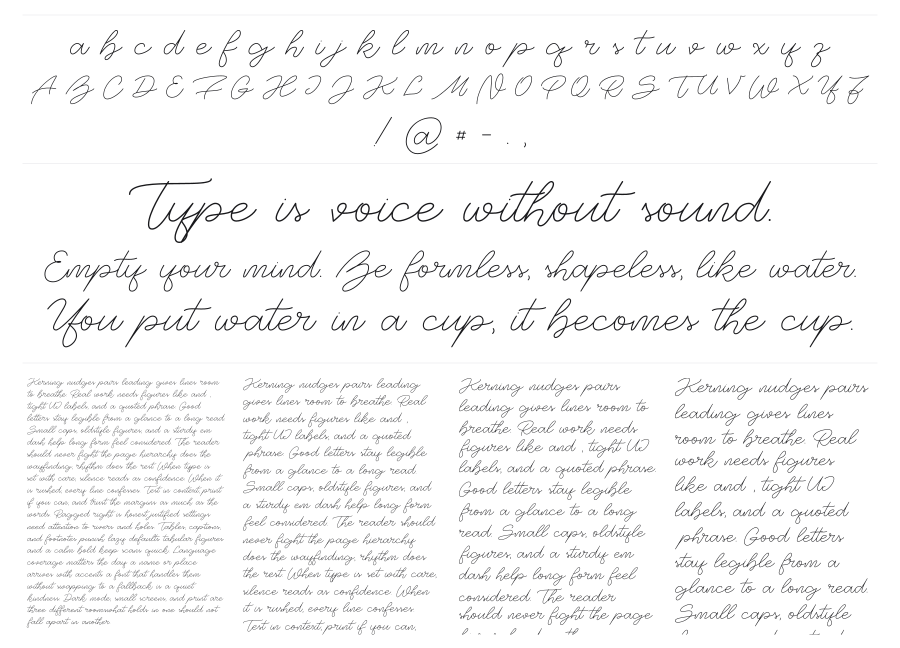 a b c d e f g h i j k l m n o p q r s t u v w x y z
A B C D E F G H I J K L M N O P Q R S T U V W X Y Z
! @ # - . ,
Type is voice without sound.
Empty your mind. Be formless, shapeless, like water.
You put water in a cup, it becomes the cup.
Kerning nudges pairs leading gives lines room
to breathe. Real work needs figures like and ,
tight UI labels, and a quoted phrase. Good
letters stay legible from a glance to a long read.
Small caps, oldstyle figures, and a sturdy em
dash help long form feel considered. The reader
should never fight the page hierarchy does the
wayfinding, rhythm does the rest. When type is
set with care, silence reads as confidence. When it
is rushed, every line confesses. Test in context, print
if you can, and trust the margins as much as the
words. Ragged right is honest, justified settings
need attention to rivers and holes. Tables, captions,
and footnotes punish lazy defaults tabular figures
and a calm bold keep scans quick. Language
coverage matters the day a name or place
arrives with accents a font that handles them
without swapping to a fallback is a quiet
kindness. Dark mode, small screens and print are
three different rooms what holds in one should not
fall apart in another.
Kerning nudges pairs leading
gives lines room to breathe. Real
work needs figures like and ,
tight UI labels, and a quoted
phrase. Good letters stay legible
from a glance to a long read.
Small caps, oldstyle figures, and
a sturdy em dash help long form
feel considered. The reader should
never fight the page hierarchy
does the wayfinding, rhythm does
the rest. When type is set with care,
silence reads as confidence. When
it is rushed, every line confesses.
Test in context, print if you can,
Kerning nudges pairs
leading gives lines room to
breathe. Real work needs
figures like and , tight UI
labels, and a quoted phrase.
Good letters stay legible
from a glance to a long
read. Small caps, oldstyle
figures, and a sturdy em
dash help long form feel
considered. The reader
should never fight the page
Kerning nudges pairs
leading gives lines
room to breathe. Real
work needs figures
like and , tight UI
labels, and a quoted
phrase. Good letters
stay legible from a
glance to a long read.
Small caps, oldstyle